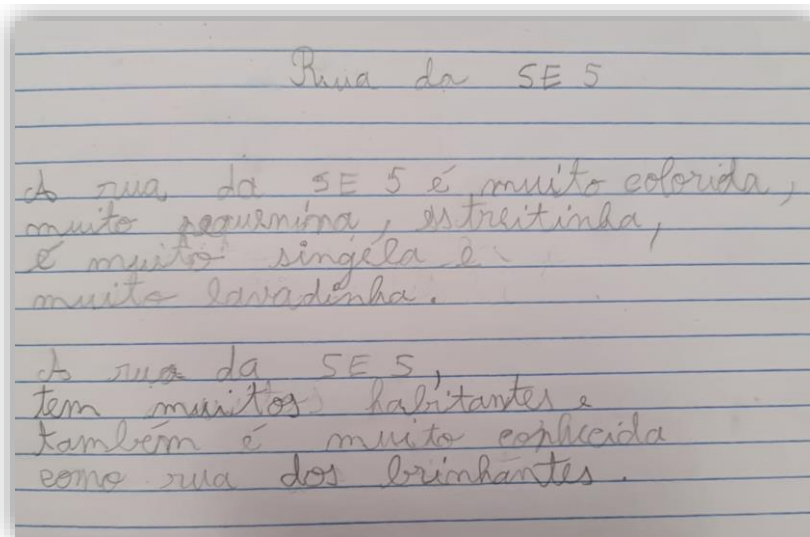 Rua da SE 5
A rua da SE 5 é muito colorida,
muito pequenina, estreitinha,
é muito singela e
muito lavadinha.
A rua da SE 5,
tem muitos habitantes e
também é muito conhecida
como rua dos brinhantes.